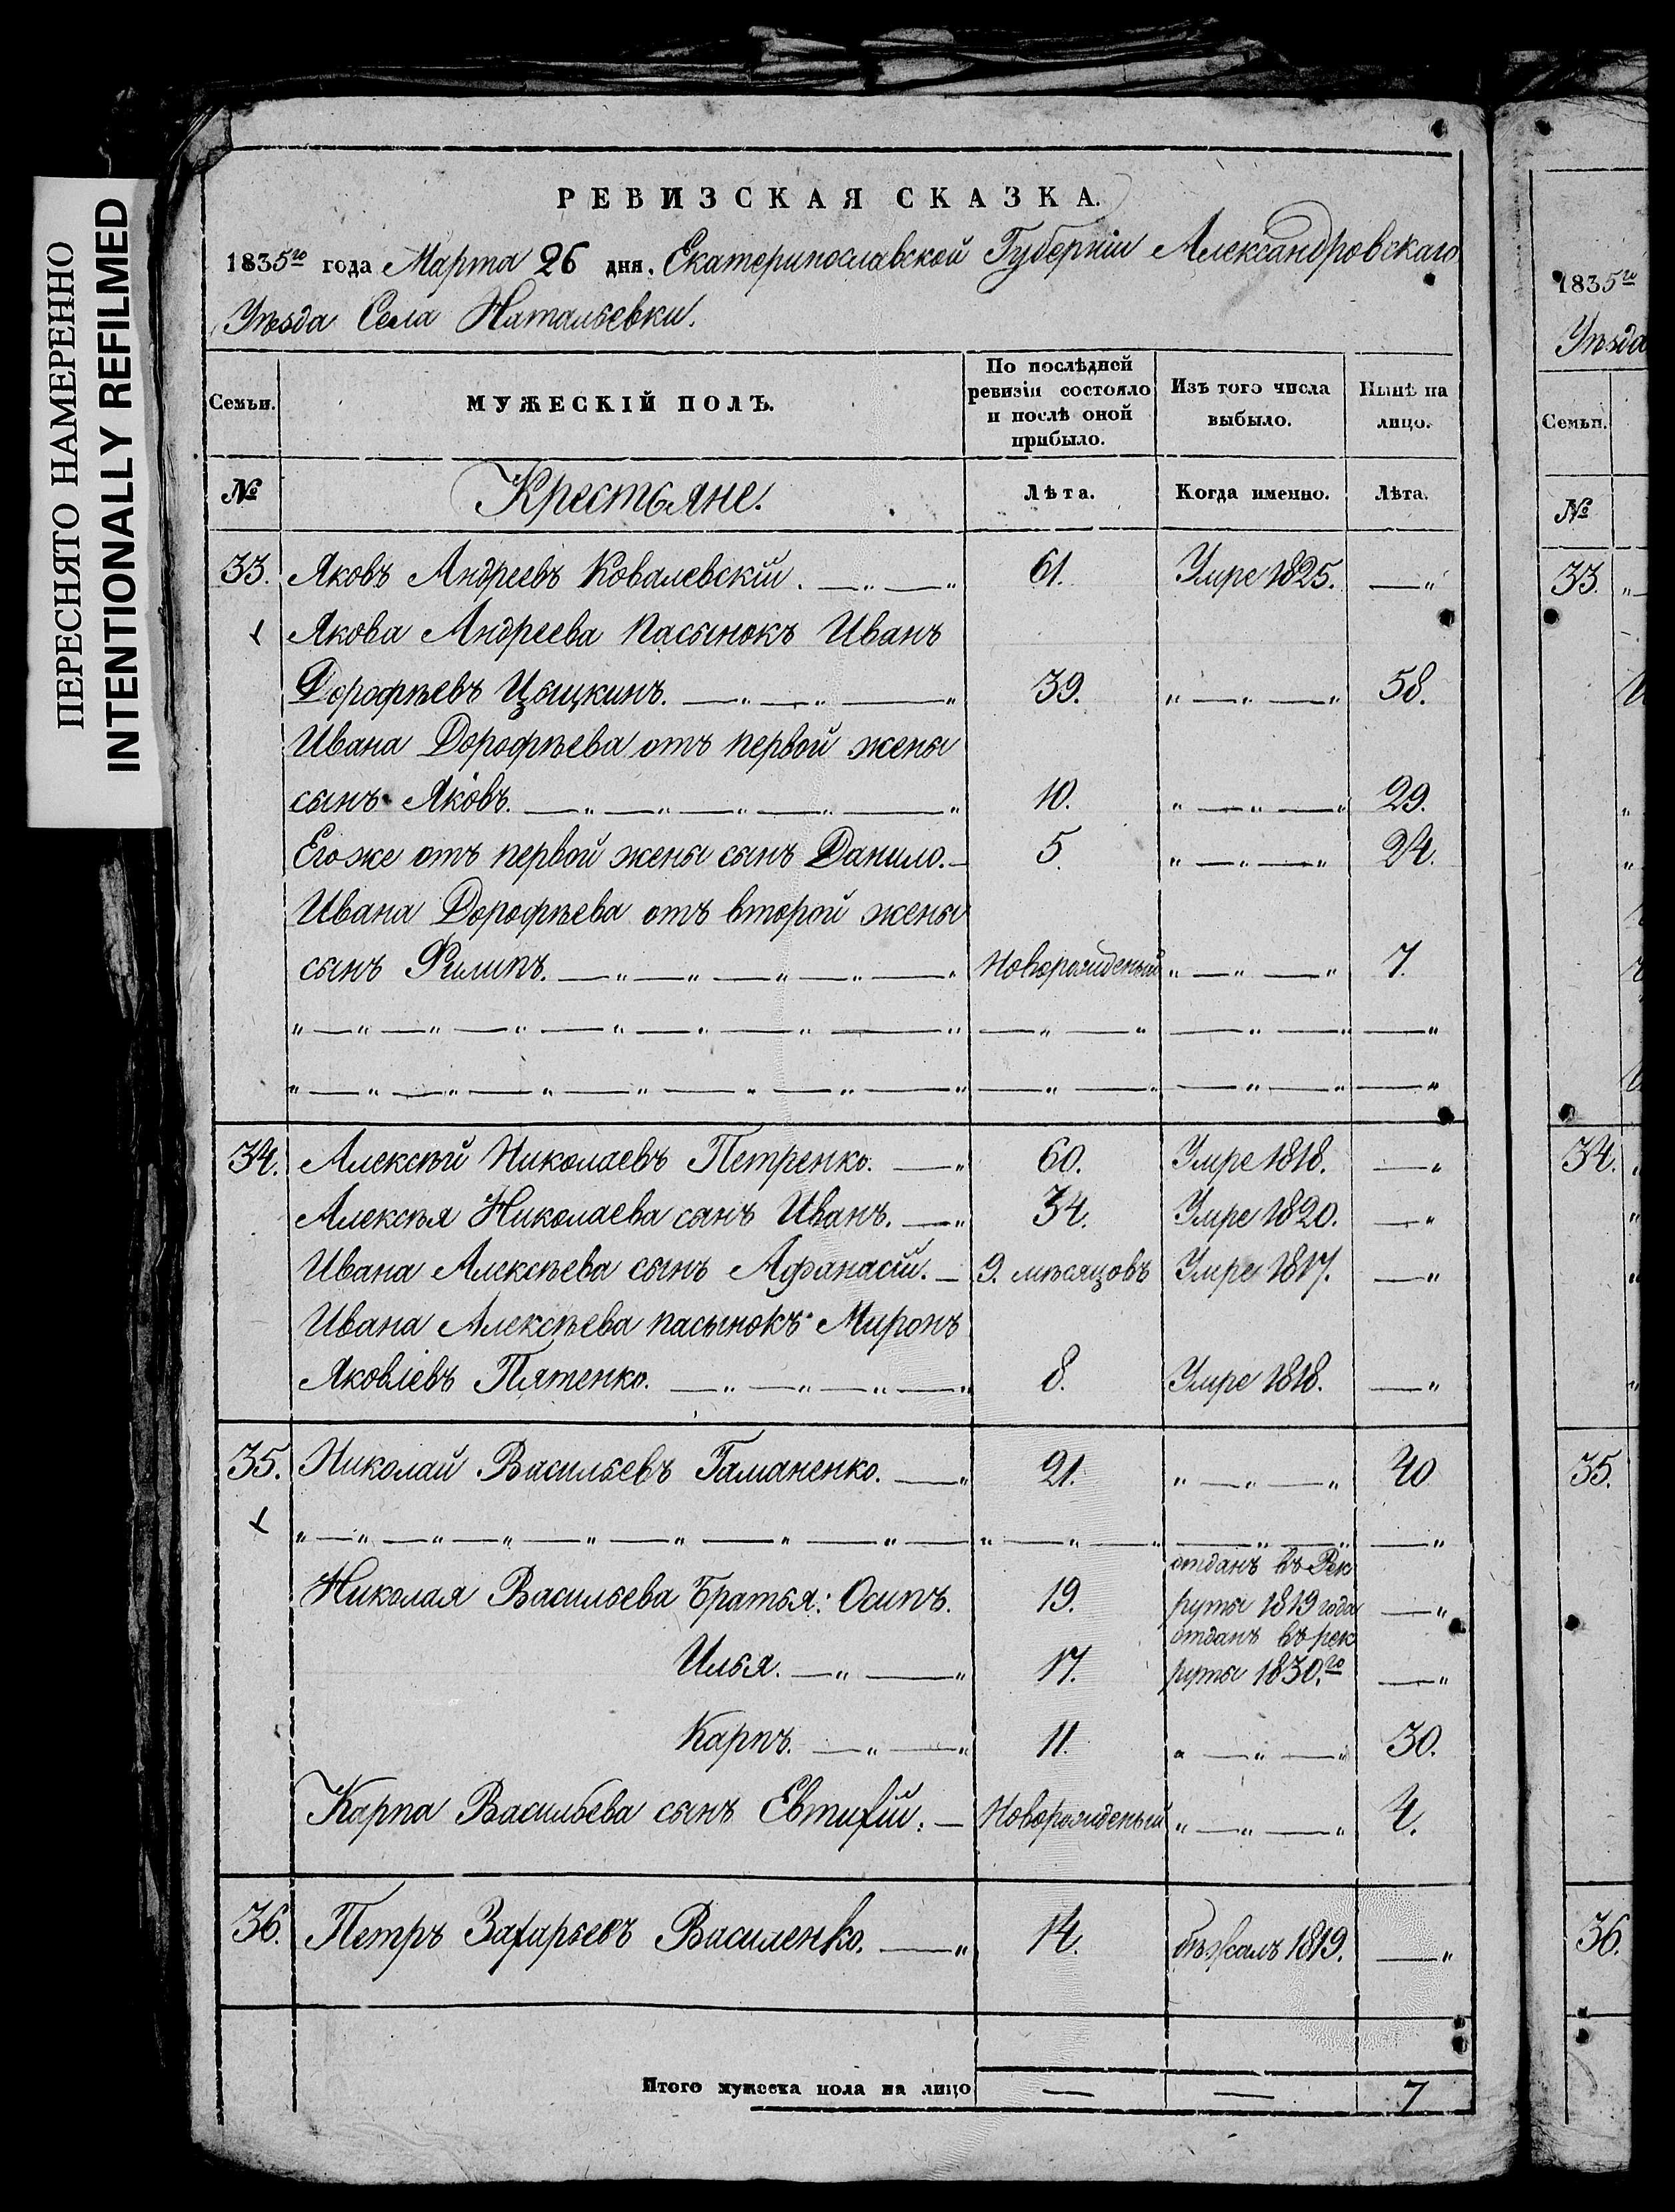 ПЕРЕСНЯТО НАМЕРЕННО
INTENTIONALLY REFILMED
РЕВИЗСКАЯ СКАЗКА.
1835го года Марта 26 дня. Екатеринославской Губерніи Александровскаго
Уѣзда Села Натальевки.
Семьи. МУЖЕСКІЙ ПОЛЪ. По послѣдней ревизіи состояло и послѣ оной прибыло. Изъ того числа выбыло. Нынѣ на лицо.
№ Крестьяне. Лѣта. Когда именно. Лѣта.
33. Яковъ Андреевъ Ковалевскій. 61. Умре 1825.
Якова Андреева пасынокъ Иванъ
Дорофѣевъ Цыцкинъ. 39. 58.
Ивана Дорофѣева отъ первой жены
сынъ Яковъ. 10. 29.
Егоже отъ первой жены сынъ Данило. 5. 24.
Ивана Дорофѣева отъ второй жены
сынъ Филипъ. Новорожденый 7.
34. Алексѣй Николаевъ Петренко. 60. Умре 1818.
Алексѣя Николаева сынъ Иванъ. 34. Умре 1820.
Ивана Алексѣева сынъ Афанасій. 9. мѣсяцовъ Умре 1817.
Ивана Алексѣева пасынокъ Миронъ
Яковлевъ Пятенко. 8. Умре 1818.
35. Николай Васильевъ Гаманенко. 21. 40
Николая Васильева Братья: Осипъ. 19. отданъ въ Рек
руты 1819 года
Илья. 17. отданъ въ рек
руты 1830.го
Карпъ. 11. 30.
Карпа Васильева сынъ Евтихій. Новорожденый 4.
36. Петръ Захарьевъ Василенко. 14. бѣжалъ 1819.
Итого мужеска пола на лицо 7
1835го
Уѣзда
Семьи.
№
33
34.
35.
36.